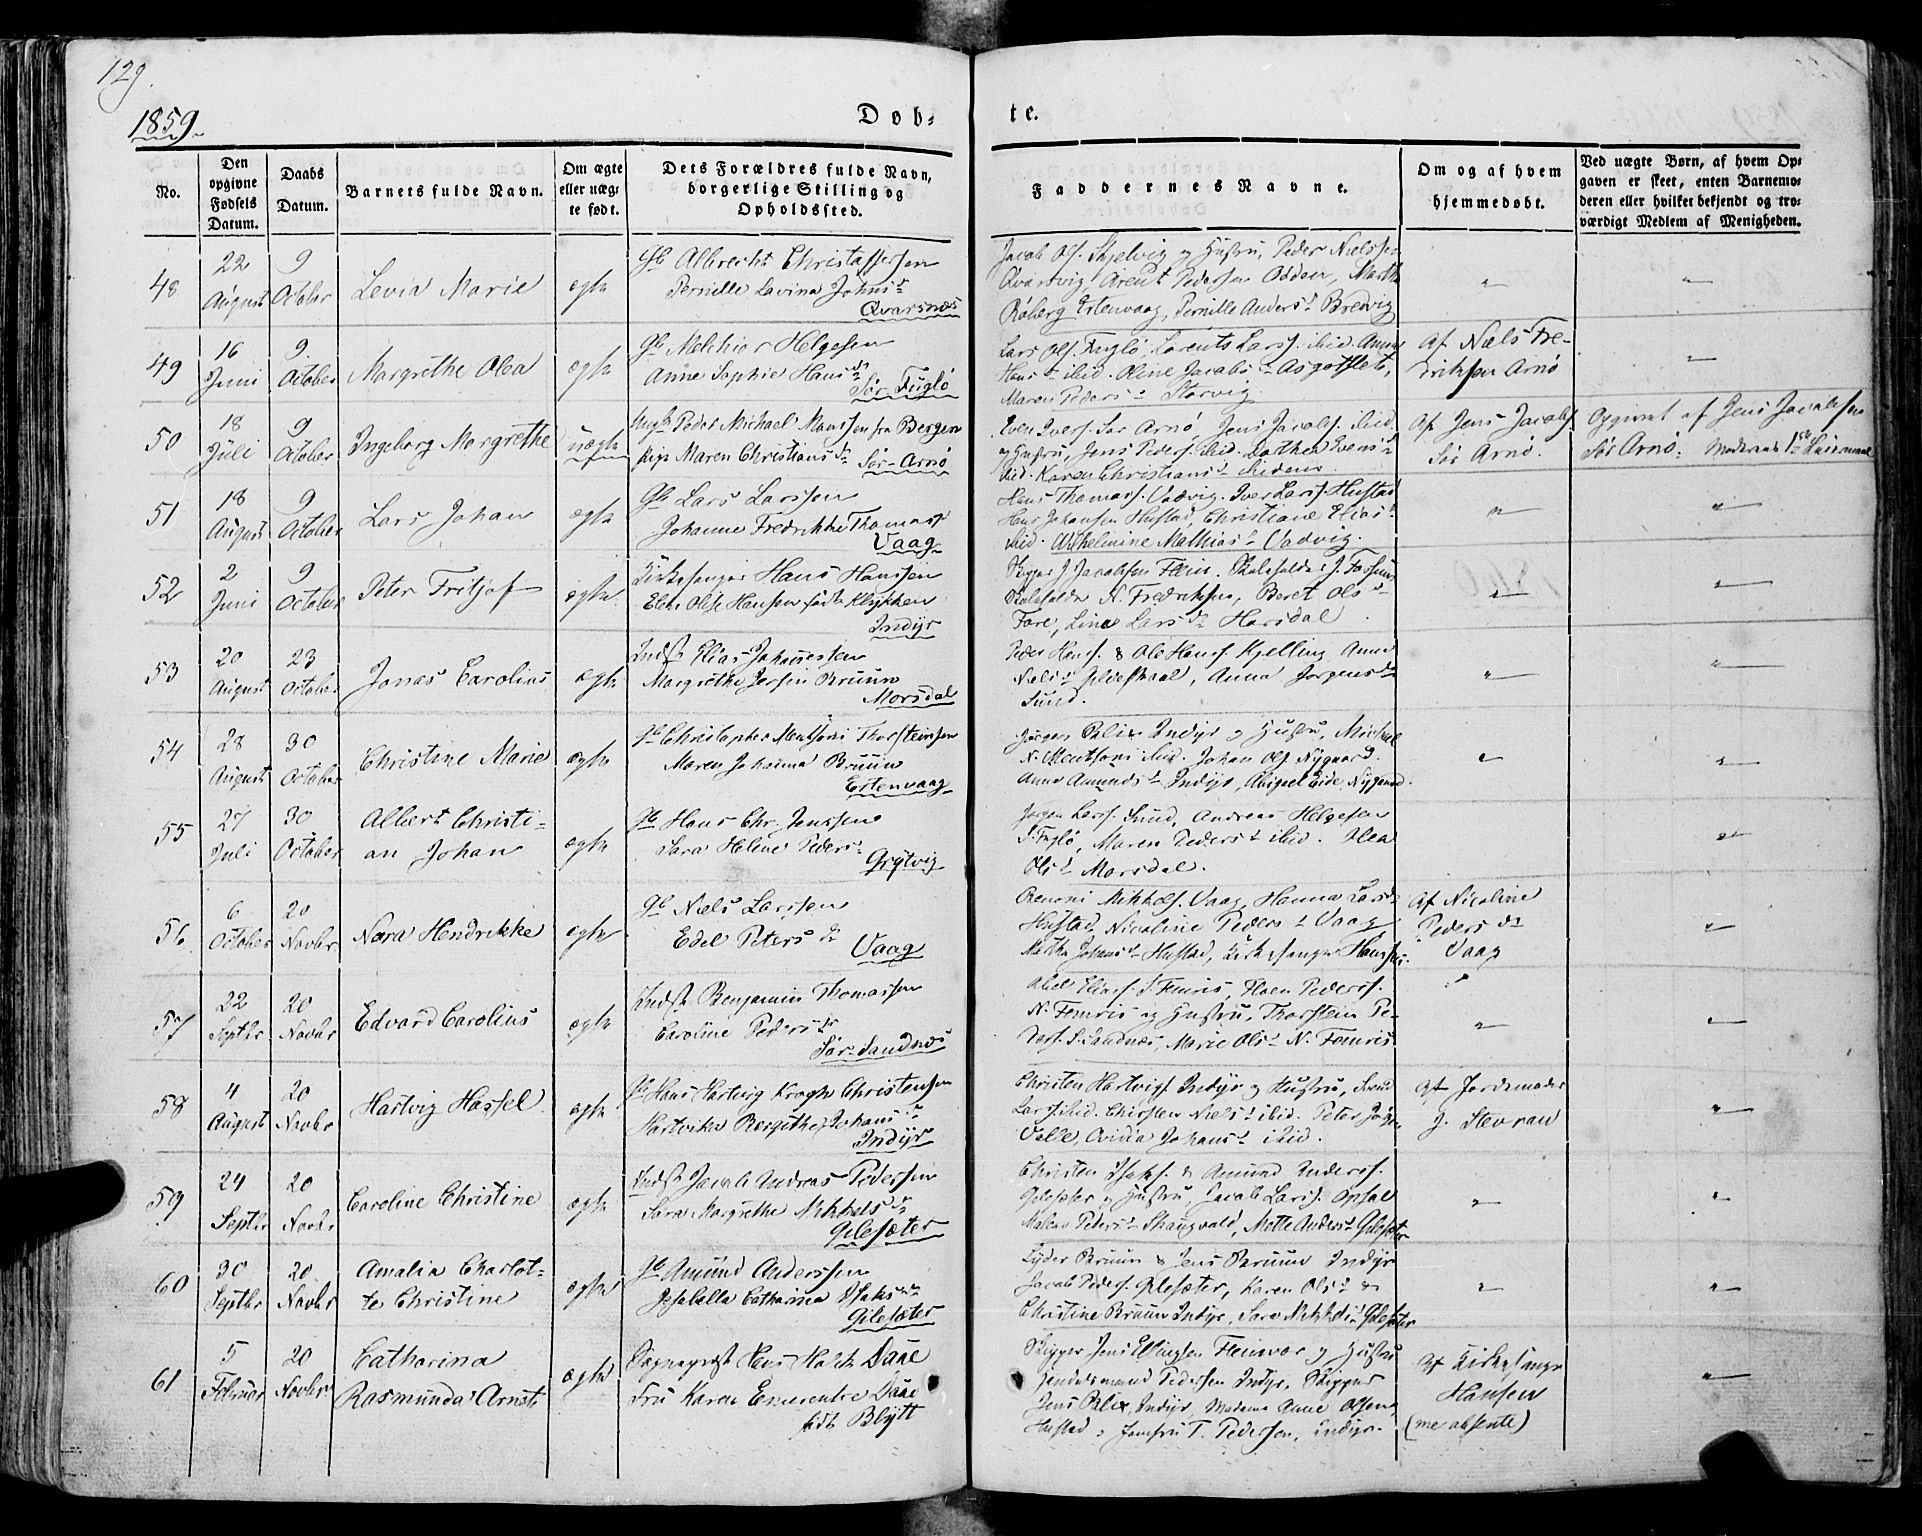 129.
1859.
Døb-
te.
No.
Den opgivne Fødsels Datum.
Daabs Datum.
Barnets fulde Navn.
Om ægte eller uæg- te født.
Dets Forældres fulde Navn, borgerlige Stilling og Opholdssted.
Faddernes Navne.
Om og af hvem hjemmedøbt.
Ved uægte Børn, af hvem Op- gaven er skeet, enten Barnemo- deren eller hvilket bekjendt og tro- værdigt Medlem af Menigheden.
48
22 August
9 October
Levia Marie
ægte
Gb Albrecht Christoffersen
Pernille Lavina Johnsd
Qvarsnæs
Jacob Ols. Skjelvig og Hustru, Peder Nielssen
Qvarsvig, Arent Pedersen Odden, Marth
Røberg Estenvaag, Pernille Andersd Bredvig
49
16 Juni
9 October
Margrethe Olea
ægte
Gb Melchior Helgesen
Anne Sophie Hansd
Sør Fuglø
Lars Ols. Fuglø, Lorents Larss. ibid. Anne
Hansd ibid. Oline Jacobsd Asgotflet,
Maren Pedersd Storvig.
Af Niels Fre-
driksen Arnø
50
18 Juli
9 October
Ingeborg Margrethe
uægte
Ungk Peder Michael Monssen fra Bergen
Pige Maren Christiansd Sør-Arnø
Even Ivers. Sør Arnø, Jens Jacobs. ibid.
og Hustru, Jens Peders. ibid. Dorthea Evensd
ibid. Karen Christiansd ibidem.
Af Jens Jacobs.
Sør Arnø.
Opgivet af Jens Jacobsen
Sør Arnø. Moderens 1ste Leiermaal
51
18 August
9 October
Lars Johan
ægte
Gb Lars Larssen
Johanne Fredrikke Thomasd
Vaag
Hans Thomass. Vadvig. Iver Larss. Hustad
Hans Johansen Hustad, Christiane Eliasd
ibid. Wilhelmine Mathiasd Vadvig.
52
2 Juni
9 October
Peter Fritjof
ægte.
Kirkesanger Hans Hanssen
Elen Olise Hansen født Klykken
Indyr
Skipper J. Jacobsen Fleina. Skoleholder J. Fossum
Skoleholder N. Fredriksen, Beret Olsd
Fore, Lina Larsd Horsdal
53
20 August
23 October
Jonas Carolius
ægte
Indst Elias Johannessen
Margrethe Jersin Bruun
Morsdal
Peder Hans. & Ole Hanss. Kjelling Anne
Nielsd Gildeskaal, Anna Jørgensd
Sund.
54
28 August
30 October
Christine Marie
ægte
Gb Christopher Mentsoni Thorsteinsen
Maren Johanna Bruun
Estenvaag
Jørgen Blix Indyr og Hustru, Michael
N. Mentsoni ibid. Johan Ols. Nygaard.
Anne Amundsd Indyr, Abigael Eide Nygaard.
55
27 Juli
30 October
Albert Christi-
an Johan
ægte
Gb Hans Chr. Jenssen
Sara Helene Pedersd
Grytvig
Jørgen Larss. Sund, Andreas Helgesen
S. Fuglø, Maren Pedersd ibid. Olea
Olsd Morsdal.
56
6 October
20 Novbr
Nora Hendrikke
ægte
Gb Niels Larssen
Edel Petersd Vaag
Benoni Mikkels. Vaag, Hanna Larsd
Hustad, Nicoline Pedersd Vaag
Martha Johansd Hustad, Kirkesanger Hanssen.
Af Nicoline
Pedersd
Vaag
57
22 Septbr
20 Novbr
Edvard Carolius
ægte
Indst Benjamin Thomassen
Caroline Pedersd
Sør-Sandnæs
Abel Elias. S. Femris, Hoen Pederss.
N. Femris og Hustru, Thorstein Pe-
derss. S. Sandnæs, Marie Olsd N. Femris
58
4 August
20 Novbr
Hartvig Hassel
ægte
Gb Hans Hartvig Krogh Christensen
Hartvika Bergithe Johansd
Indyr
Christen Hartvigs. Indyr og Hustru, Svend
Larss. ibid. Chirsten Nielsd ibid. Peter
Valle, Ovidia Johansd ibid.
Af Jordemoder
J. Stevran
59
24 Septbr
20 Novbr
Caroline Christine
ægte
Indst Jacob Andreas Pedersen
Sara Margrethe Mikkelsd
Gilesæter
Christen Isaks. & Amund Anderss.
Gilesæter og Hustru, Jacob Larss. Opsal
Malene Pedersd Skaugvold, Mette Andersd Gilesæter
60
30 Septbr
20 Novbr
Amalia Charlot-
te Christine
ægte
Gb Amund Anderssen
Isabella Catharina Isaksd
Gilesæter
Lyder Bruun & Jens Bruun Indyr
Jacob Peders. Gilesæter, Karen Olsd &
Christine Bruun Indyr, Sara Mikkelsd Gilesæter
61
5 Februar
20 Novbr
Catharina
Rasmunda Arnets
ægte
Sognepræst Hans Holck Daae
Fru Karen Emerentze Daae
født Blytt
Skipper Jens Ellingsen Fleinvær og Hustru
Handelsmand Pedersen Indyr, Skipper
Jens Blix, Indyr, Madame Anne Olsen
Hustad, Jomfru T. Pedersen, Indyr.
Af Kirkesanger
Hansen
(me absente)